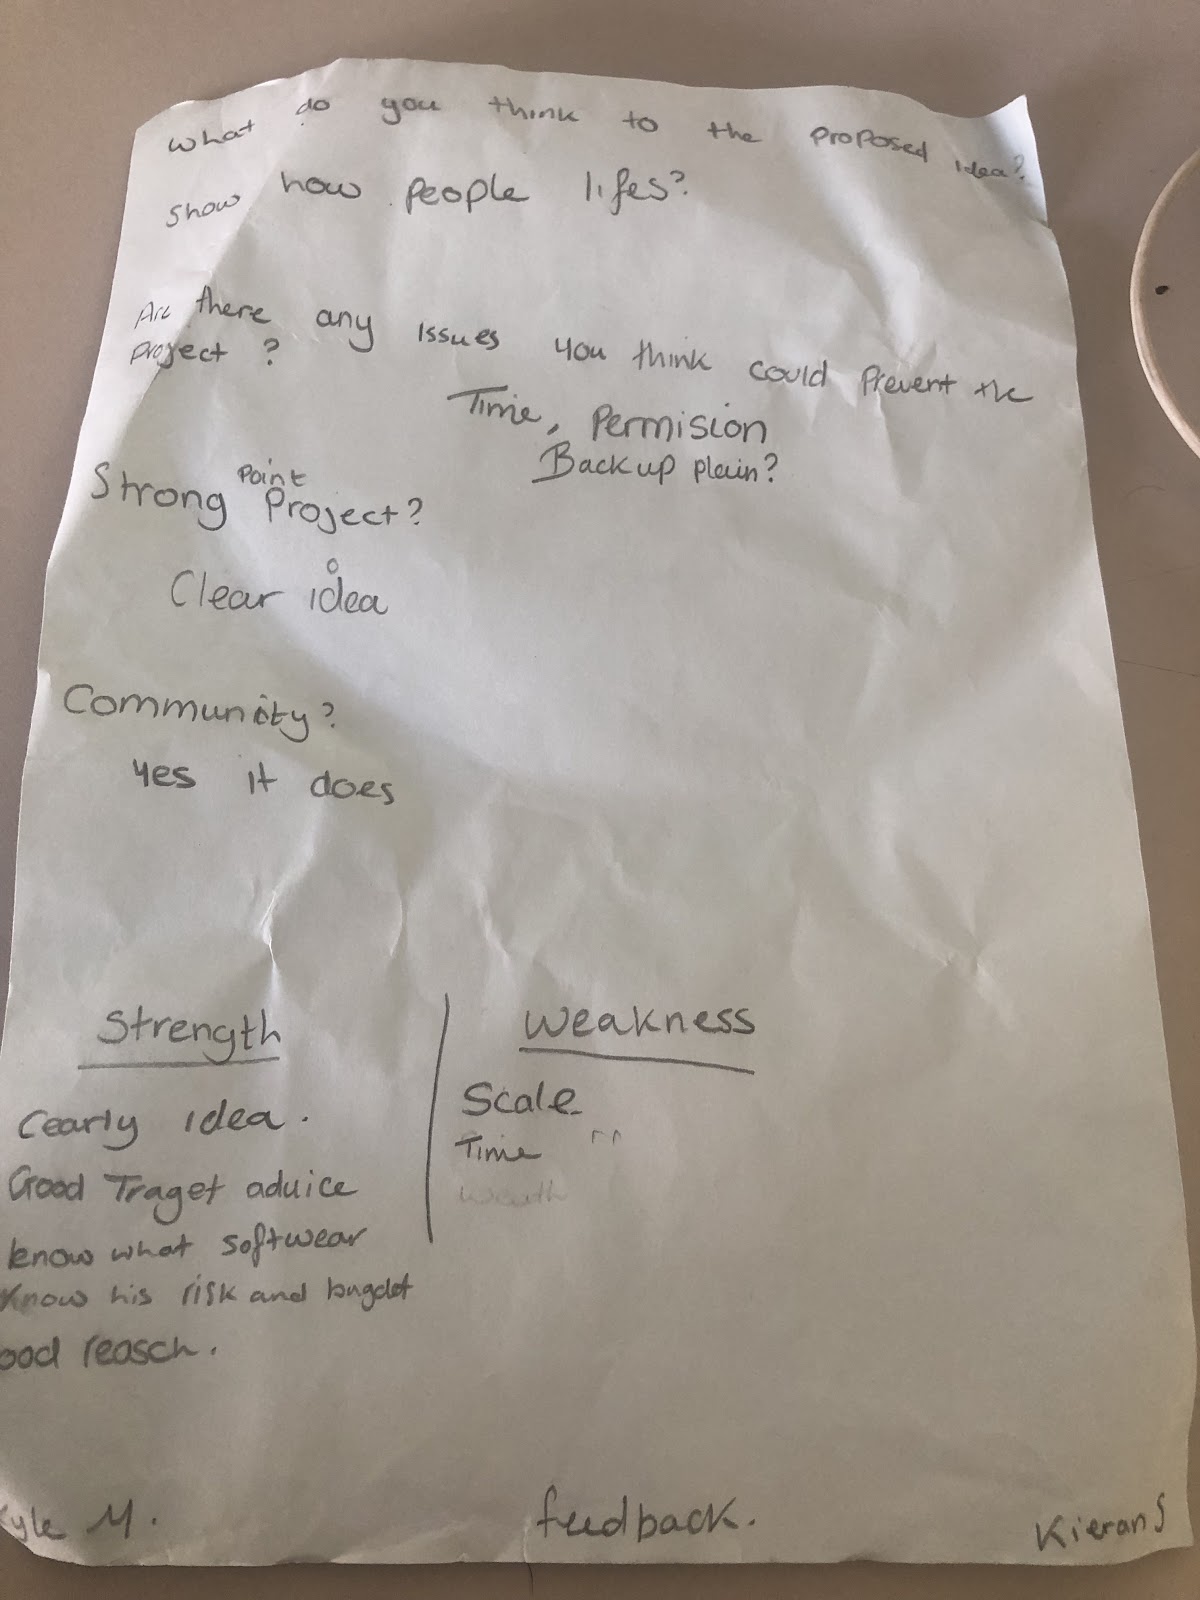 What do you think to the proposed idea?
Show how people lifes?
Are there any issues you think could prevent the
project ?
Time, Permision
Backup plain?
Point
Strong Project?
Clear idea
Community?
yes it does
Strength
Weakness
Cearly idea.
Scale
Time
Good Traget aduice
know what softwear
Know his risk and bugdet
ood reasch.
yle M.
feedback.
Kieran S